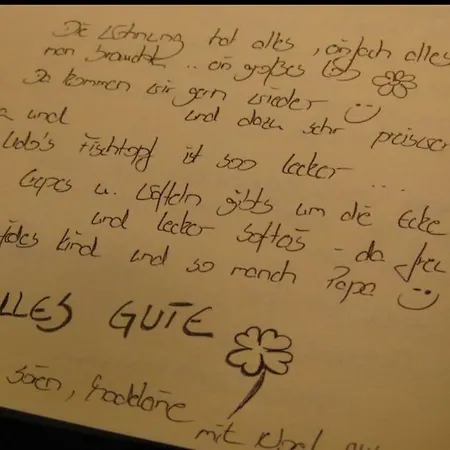 Die Wohnung hat alles, einfach alles
man braucht .. ein großes Lob
Da kommen wir gern wieder
und dazu sehr preiswer
Udo's Fischtopf ist soo lecker ...
u. Waffeln gibts um die Ecke
und lecker Softeis - da freu
jedes Kind und so manch Papa
LLES GUTE
mit